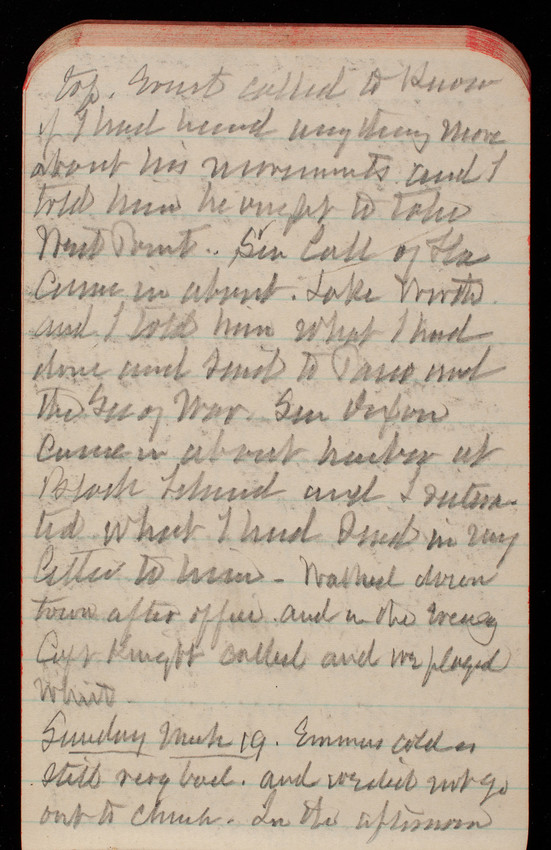 top. Ernst called to know
if I had heard anything more
about his movements and I
told him he ought to take
West Point.. Sen Call of Fla
came in about. Lake Worth.
and I told him what I had
done and said to and
the Sec of War. Sen Dixon
came in about harbor at
Block Island and I reitera-
ted what I had said in my
letter to him - Walked down
town after office. and in the eveng
Capt Knight called and we played
Whist.
Sunday March 19. Emmas cold is
still very bad. and we did not go
out to church. In the afternoon